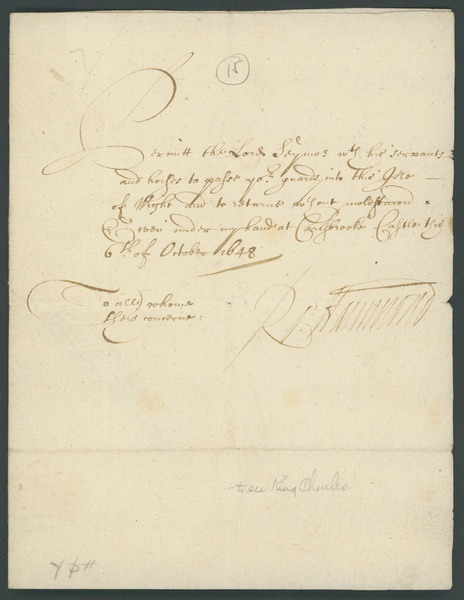 15
Permitt the Lord Seymor wth his servants
and horses to passe yor guards into this Isle
of Wight and to returne wthout molestacon
Given under my hand at Carisbrooke Castle this
6th of October 1648
To all whome
theis concerne:
Ro: Hammond
to see King Charles